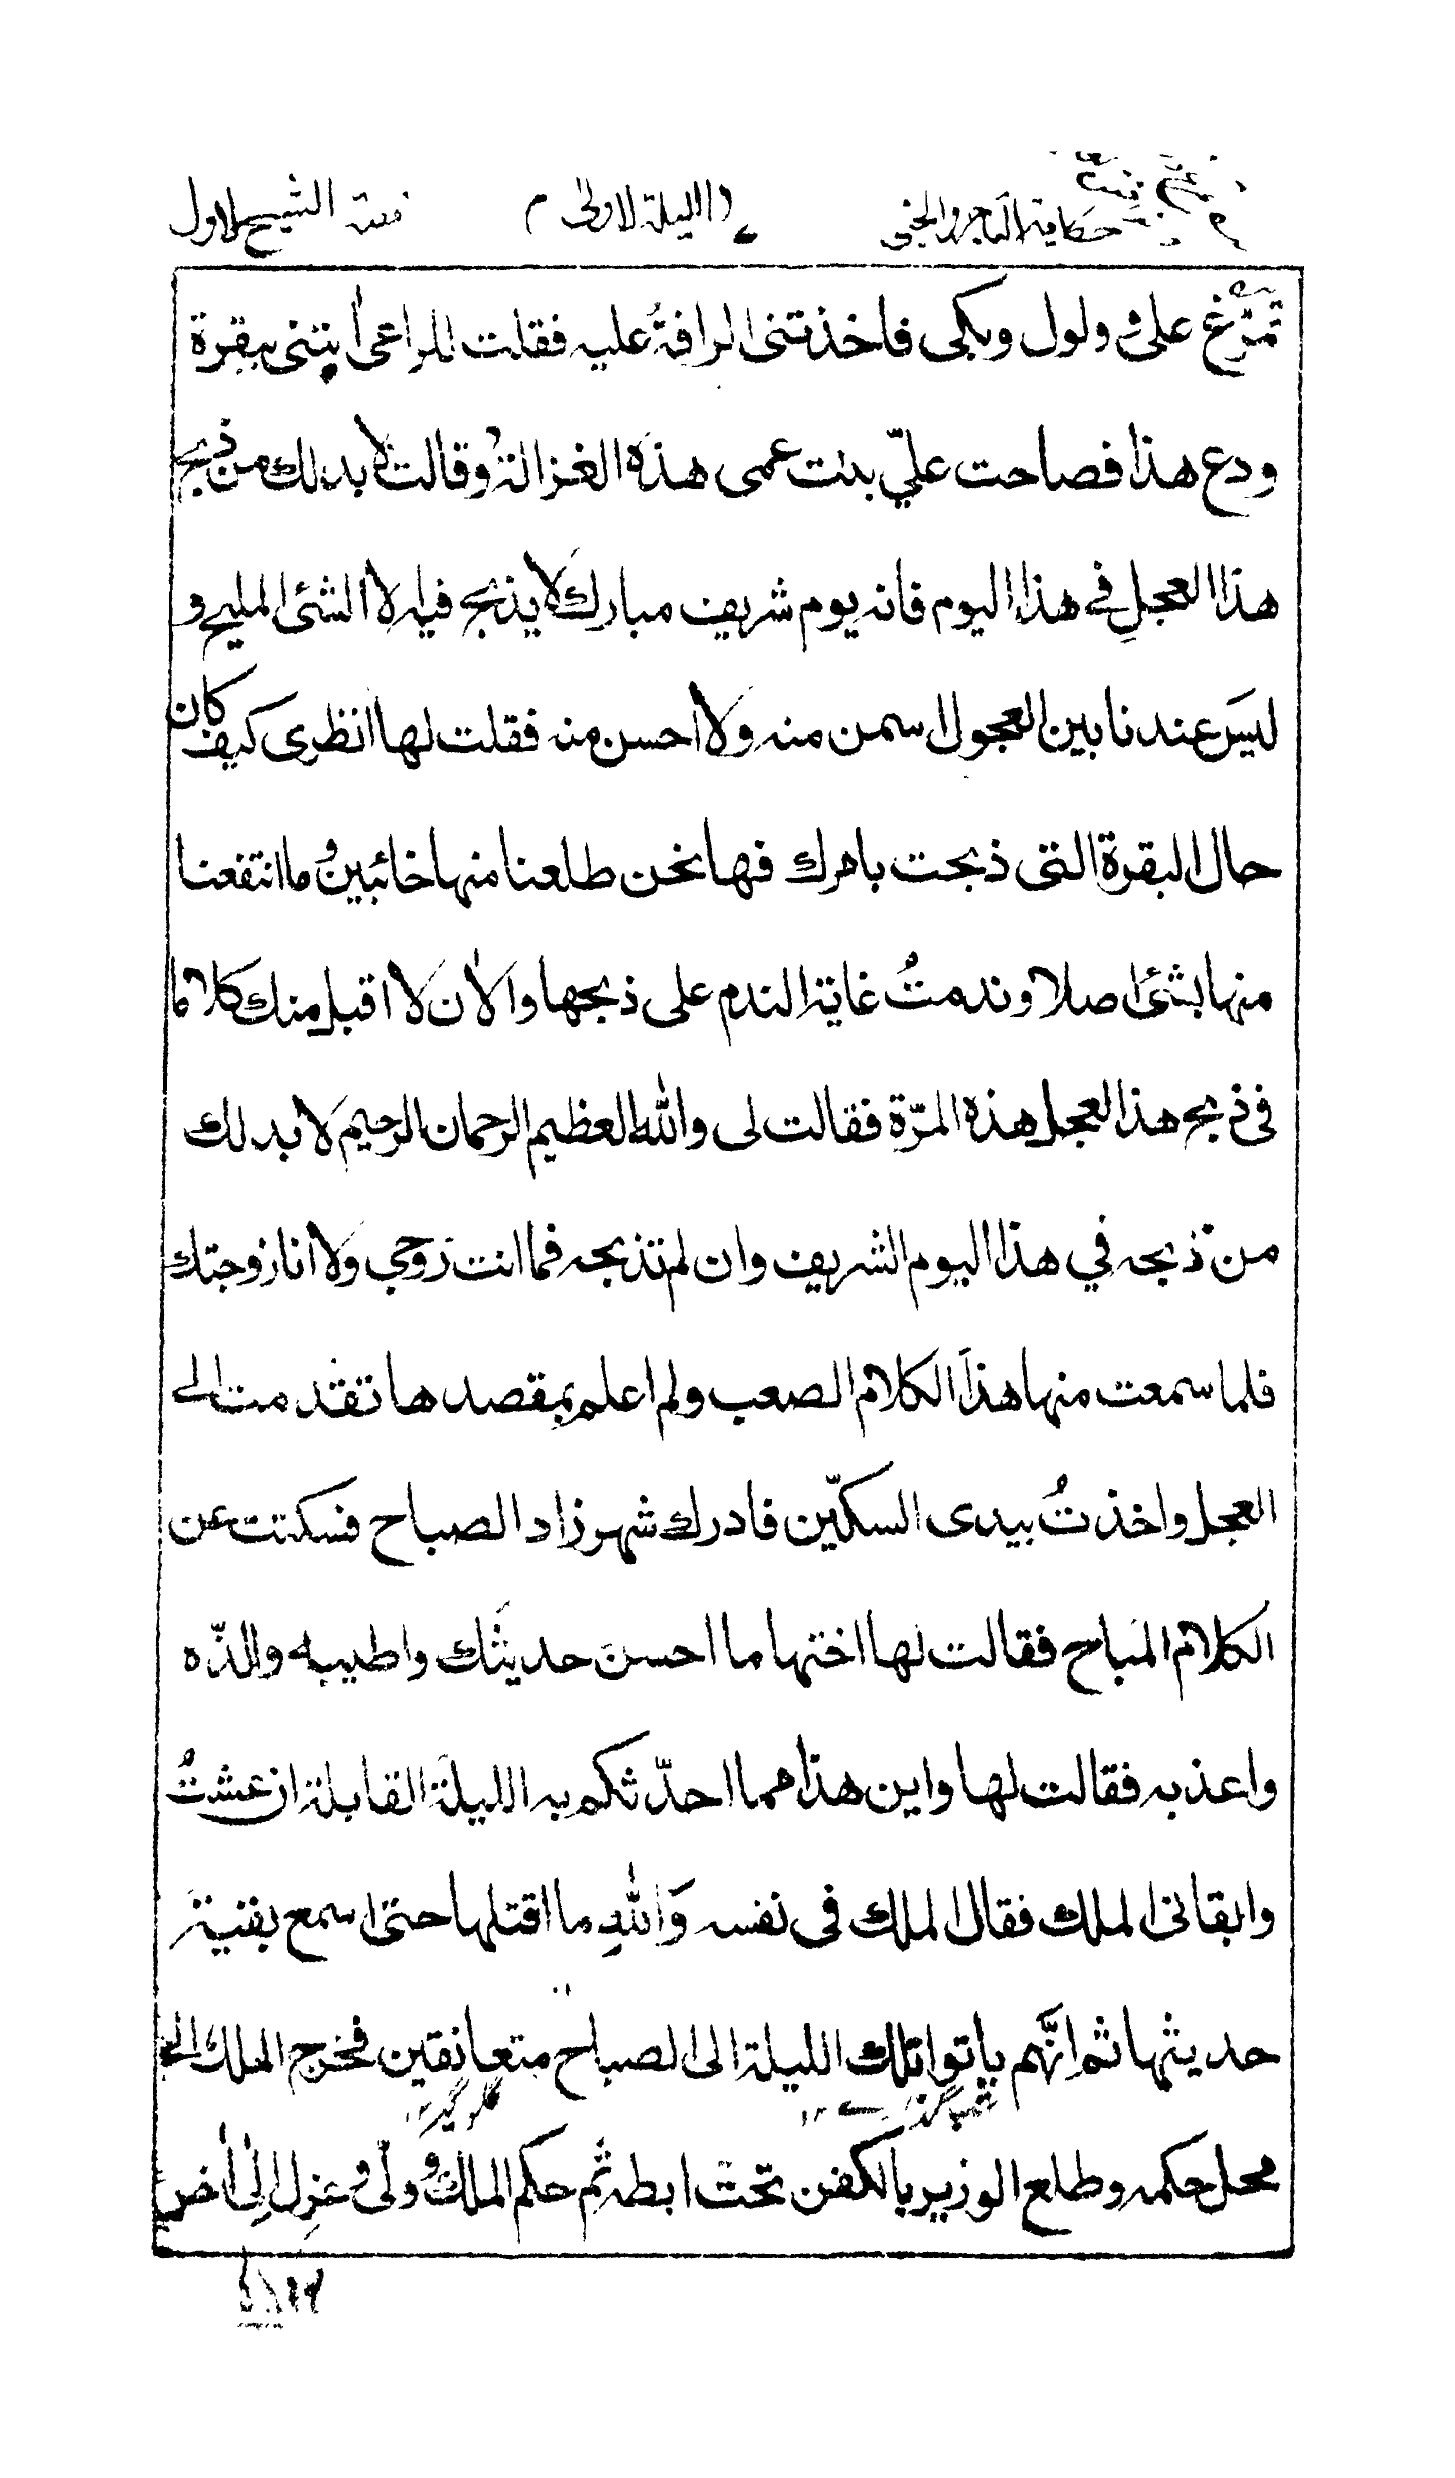 حكاية التاجر والجني
الليلة الاولى
قصة الشيخ الاول
تمرّغ علىّ و ولول وبكى فاخذتنى الرافةُ عليه فقلت للراعى اٰيتنى ببقرة
ودع هذا فصاحت عليّ بنت عمى هذه الغزالة وقالت لا بد لك من ذبح
هذا العجلِ في هذا اليوم فانه يوم شريف مبارك لا يذبح فيه الا الشئ المليح و
ليسَ عندنا بين العجول اسمن منه ولا احسن منه فقلت لها انظرى كيف كان
حال البقرة التى ذبحت بامرك فها نحن طلعنا منها خائبين وما انتفعنا
منها بشئ اصلا وندمتُ غاية الندم على ذبحها والاٰن لا اقبل منك كلاما
فى ذبح هذا العجل هذه المرّة فقالت لى والله العظيم الرحمان الرحيم لا بد لك
من ذبحه في هذا اليوم الشريف وان لم تذبحه فما انت زوجي ولا انا زوجتك
فلما سمعت منها هذا الكلام الصعب ولم اعلم بمقصدها تقدمت الى
العجل واخذتُ بيدى السكّين فادرك شهرزاد الصباح فسكتت عن
الكلام المباح فقالت لها اختها ما احسنَ حديثَك واطيبه والذّه
واعذبه فقالت لها واين هذا مما احدّثكم به الليلةَ القابلة ان عشتُ
وابقانى الملك فقال الملك فى نفسه وَاللهِ ما اقتلها حتى اسمع بقية
حديثها ثم انّهم باتوا تلك الليلة الى الصباح متعانقين فخرج الملك الى
محل حكمه وطلع الوزير بالكفن تحت ابطه ثم حكم الملك و ولّى و عزل الى اٰخر